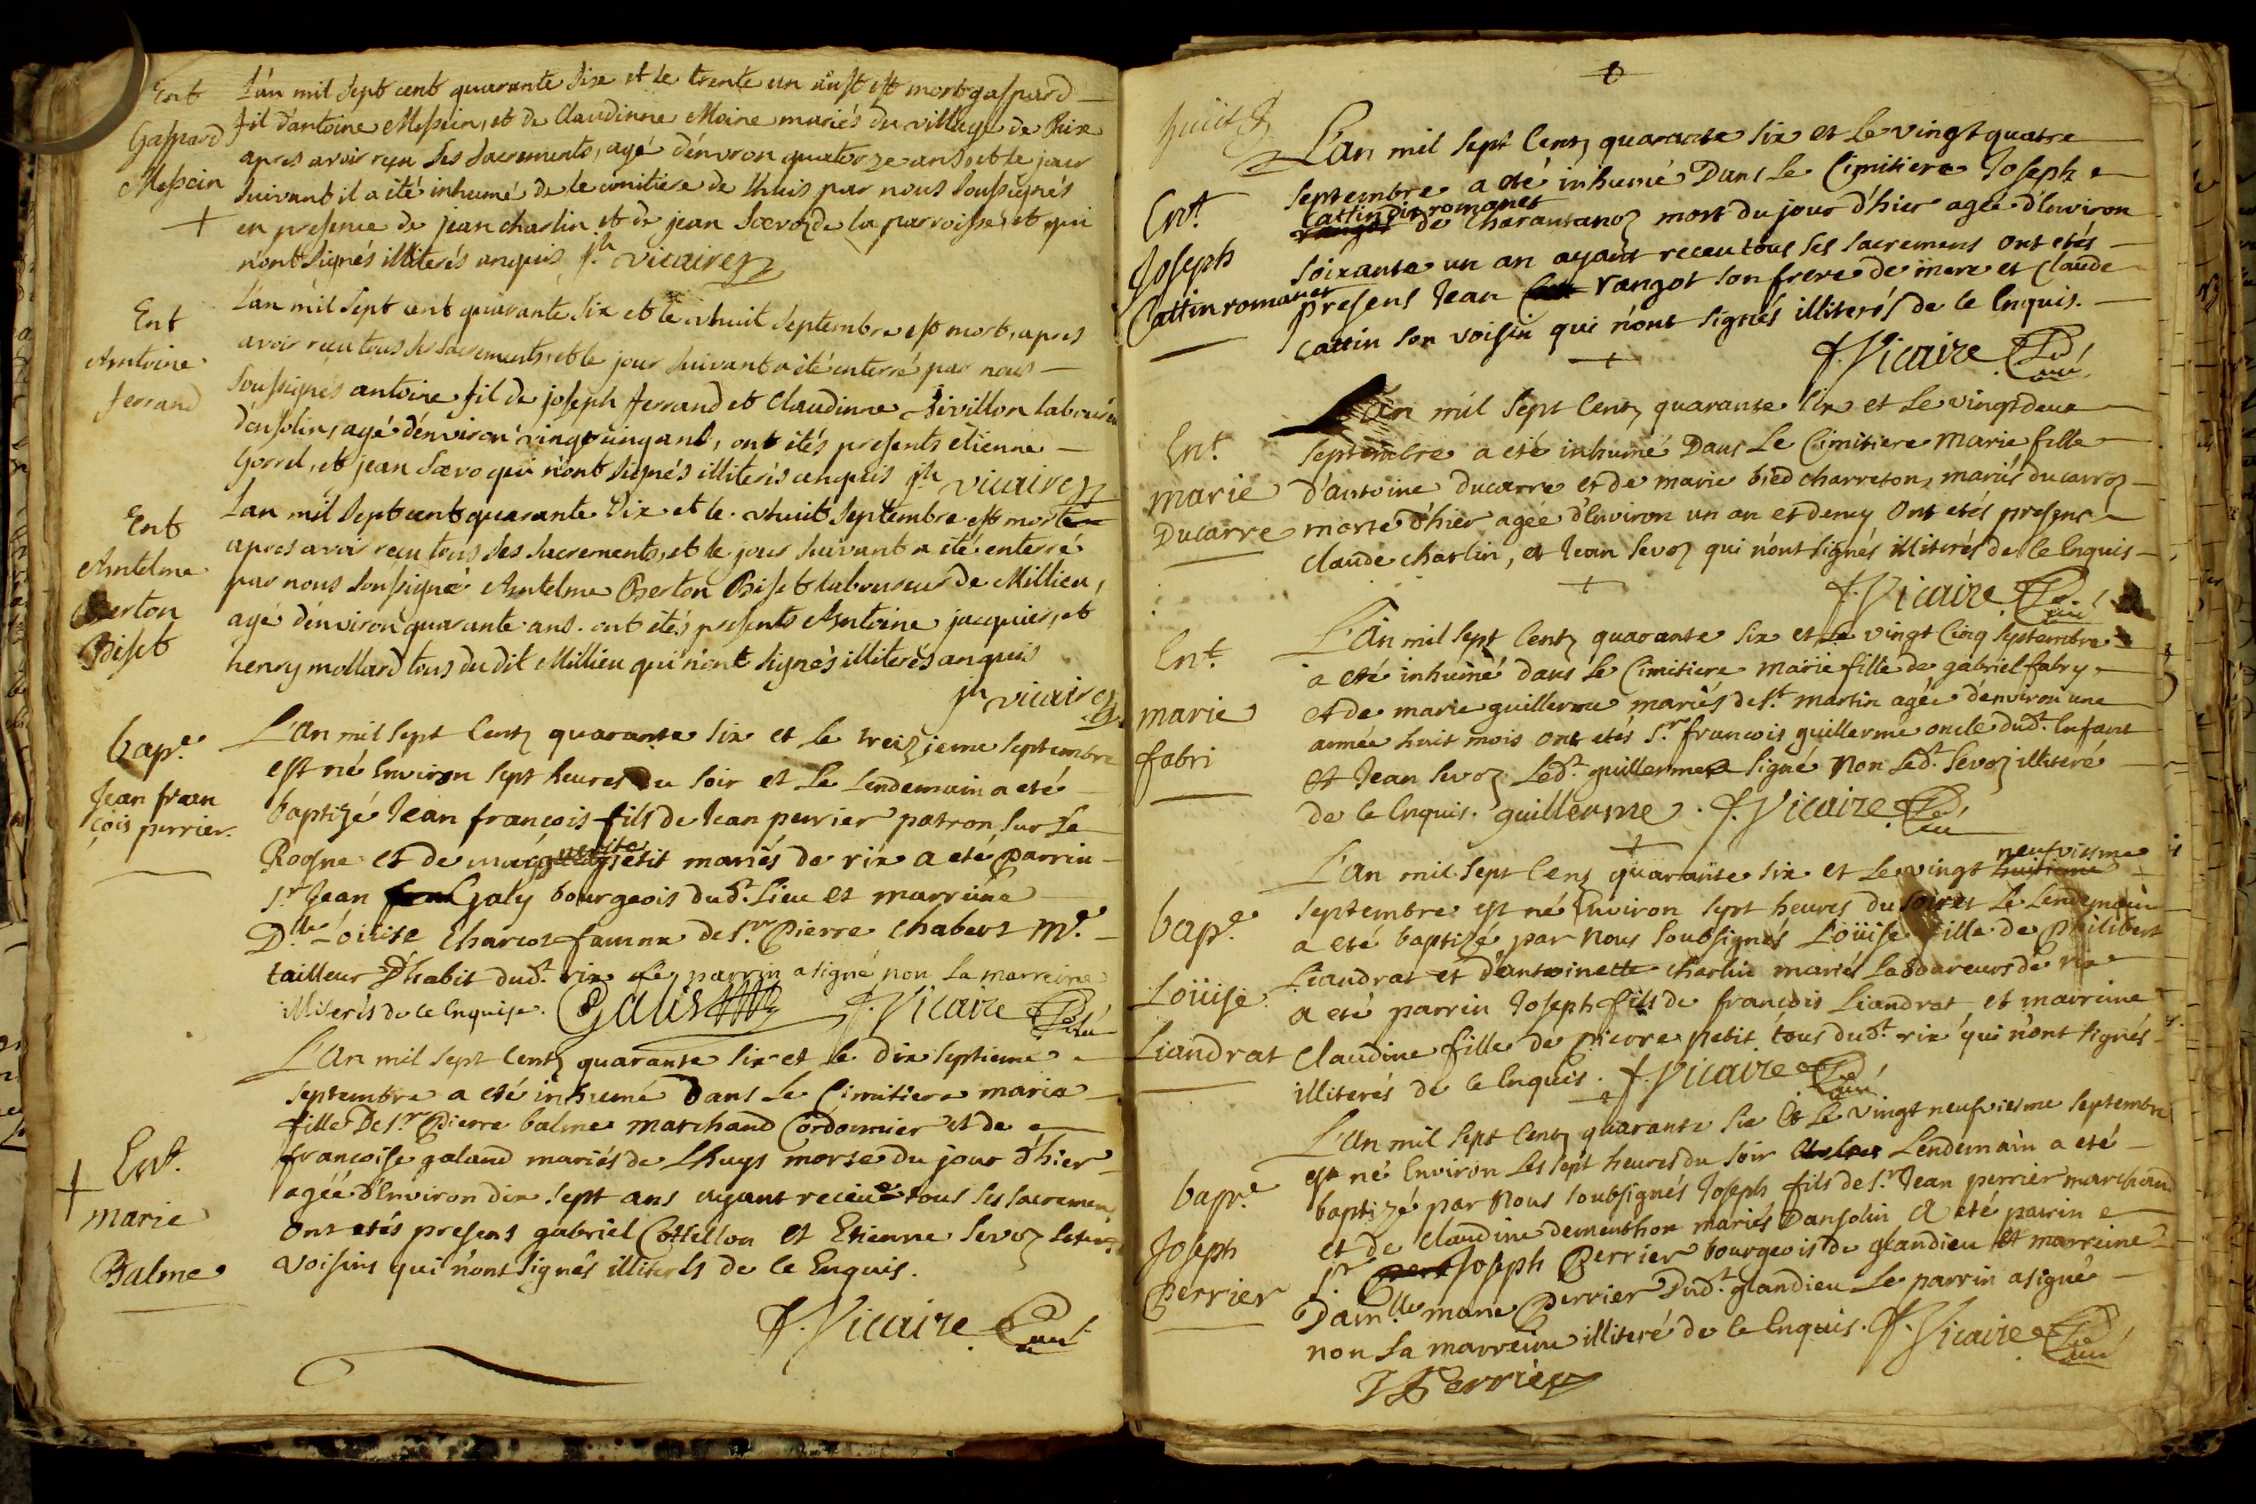 Ent
Gaspard
Messein
+
L'an mil sept cent quarante six et le trente un aust est mort gaspard
fil d'antoine Messein, et de Claudinne Moine mariés du village de Rix
apres avoir reçu ses sacrements, agé d'environ quatorze ans, et le jour
suivant il a été inhumé de le cimitiere de Lhuis par nous soussignés
en presence de jean charlin et de jean Soevoz de la parroisse, et qui
n'ont signés illiterés anquis jh vicaire
Ent
Antoine
ferrand
L'an mil sept cent quarante six et le huit septembre est mort, apres
avoir reçu tous ses sacrements, et le jour suivant a été enterré par nous
soussignés antoine fil de joseph ferrand et Claudinne Sivillon laboureur
d'ansolin, agé d'environ vingt cinq ans, ont étés presents etienne
Gorrel, et jean Soevo qui n'ont signés illiterés anquis jh vicaire
Ent
Antelme
Berton
Biset
L'an mil sept cent quarante six et le huit septembre est mort
apres avoir reçu tous ses sacrements, et le jour suivant a été enterré
par nous soussigné Antelme Berton Biset laboureur de Millieu,
agé d'environ quarante ans. ont étés presents Antoine jacquier, et
henry mollard tous du dit Millieu qui n'ont signés illiterés anquis
jh vicaire
bap.e
Jean fran
çois perrier
L'an mil sept Centz quarante six et le treizieme septembre
est né Environ sept heures du soir et Le Lendemain a eté
baptizé Jean françois fils de Jean perrier patron sur Le
Rosne et de marguerite petit mariés de rix a eté Parrin
S.r Jean Galy bourgeois dud.t Lieu et marreine
D.lle Loüise Charcot famme de S.r Pierre Chabert M.e
tailleur D'habit dud.t rix Le parrin a signé non La marreine
illiterés de ce Enquise. Galis J. Vicaire Curé
+
Ent.
marie
Balme
L'an mil sept Centz quarante six et le dix septieme
septembre a eté inhumé Dans Le Cimitiere maria
fille De S.r Pierre balme marchand Cordonnier et de
françoise galand mariés de Lhuys morte du jour d'hier
agéé d'Environ dix sept ans ayant receu tous ses sacremens
ont etés presens gabriel Cottellon et Etienne Sevoz
voisins qui n'ont signés illiterés de ce Enquis.
J. Vicaire Curé
+
huit
Ent.
Joseph
Cattin romanet
L'an mil sept Centz quarante six et Le vingt quatre
septembre a eté inhumé Dans Le Cimitiere Joseph
Cattin dit romanet
rangot de Charantanoz mort du jour d'hier agée d'Environ
soixante un an ayant receu tous ses sacremens ont etés
presens Jean rangot son frere de mere et Claude
Cattin son voisin qui n'ont signés illiterés de ce Enquis.
+ J. Vicaire Curé
Ent.
marie
Ducarre
L'an mil sept Centz quarante six et Le vingt deux
septembre a eté inhumé Dans Le Cimitiere marie fille
d'antoine ducarre et de marie bied charreton, mariés ducarroz
morte d'hier agée d'Environ un an et demy Ont etés presens
Claude charlin, et Jean Sevoz qui n'ont signés illiterés de ce Enquis
+ J. Vicaire Curé
Ent.
marie
fabri
L'an mil sept Centz quarante six et Le vingt Cinq septembre
a eté inhumé dans Le Cimitiere marie fille de gabriel fabry
et de marie guillerme mariés de S.t martin agée d'environ une
année huit mois ont etés S.r francois guillerme oncle dud.t Enfant
et Jean Sevoz Led.t guillerme a signé non Led.t Sevoz illiteré
de ce Enquis. guillerme. J. Vicaire Curé
+
bap.e
Loüise
Liandrat
L'an mil sept Cens quarante six et Le vingt neufviesme
huitieme
septembre est né Environ sept heures du soir et Le Lendemain
a eté baptizé par nous soubsignés Loüise fille de Philibert
Liandrat et d'antoinette charlin mariés Laboureurs de rix
a eté parrin Joseph fils de françois Liandrat et marreine
Claudine fille de pierre petit tous dud.t rix qui n'ont signés
illiterés de ce Enquis. J. Vicaire Curé
bapt.e
Joseph
Perrier
L'an mil sept Centz quarante six et Le vingt neufviesme septembre
est né Environ Les sept heures du soir Lendemain a eté
baptizé par nous soubsignés Joseph fils de S.r Jean perrier marchand
et de Claudine dementhon mariés Dansolin a eté parrin
S.r Joseph Perrier bourgeois de glandieu et marreine
Dam.lle marie Perrier dud.t glandieu Le parrin a signé
non La marreine illiteré de ce Enquis. J. Vicaire Curé
J Perrier